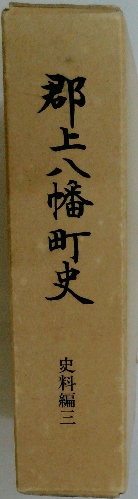 郡上八幡町史
史料編三